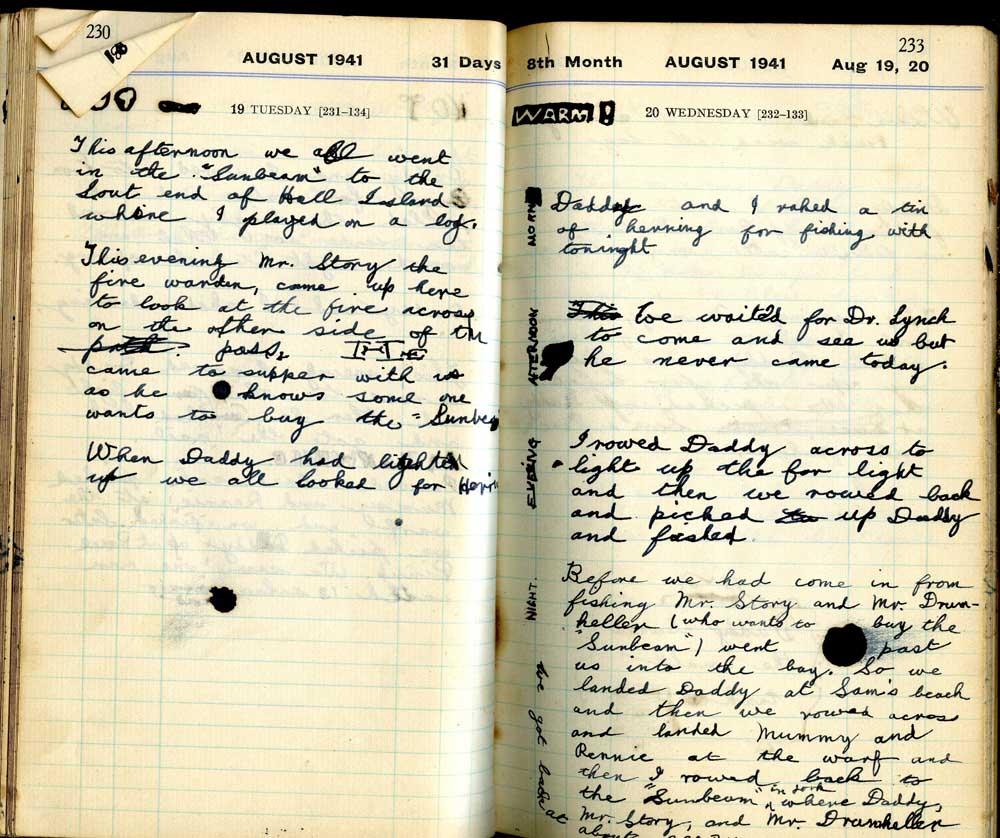 230
AUGUST 1941 31 Days
19 TUESDAY [231-134]
This afternoon we all went
in the "Sunbeam" to the
Sout end of Hall Island
where I played on a log.
This evening Mr. Story the
fire warden, came up here
to look at the fire across
on the other side of the
pass,
came to supper with us
as he knows some one
wants to buy the "Sunbeam
When Daddy had lighten
up we all looked for Herrin
233
8th Month AUGUST 1941 Aug 19, 20
WARM! 20 WEDNESDAY [232-133]
MORN
Daddy and I raked a tin
of herring for fishing with
toninght
AFTERNOON
This We waited for Dr. Lynch
to come and see us but
he never came today.
EVENING
I rowed Daddy across to
light up the far light
and then we rowed back
and picked up Daddy
and fished.
NIGHT.
Before we had come in from
fishing Mr. Story and Mr. Drum-
heller (who wants to buy the
"Sunbeam") went past
us into the bay. So we
landed Daddy at Sam's beach
and then we rowed across
and landed Mummy and
Rennie at the warf and
then I rowed back to
the "Sunbeam" where Daddy,
Mr. Story, and Mr. Drumheller
We got back at
about